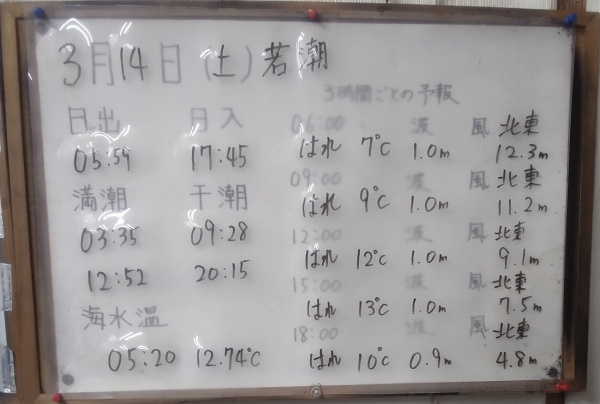 3月14日(土)若潮
日出 日入
05:59 17:45
満潮 干潮
03:35 09:28
12:52 20:15
海水温
05:20 12.74℃
3時間ごとの予報
06:00 波 風 北東
はれ 7℃ 1.0m 12.3m
09:00 波 風 北東
はれ 9℃ 1.0m 11.2m
12:00 波 風 北東
はれ 12℃ 1.0m 9.1m
15:00 波 風 北東
はれ 13℃ 1.0m 7.5m
18:00 波 風 北東
はれ 10℃ 0.9m 4.8m